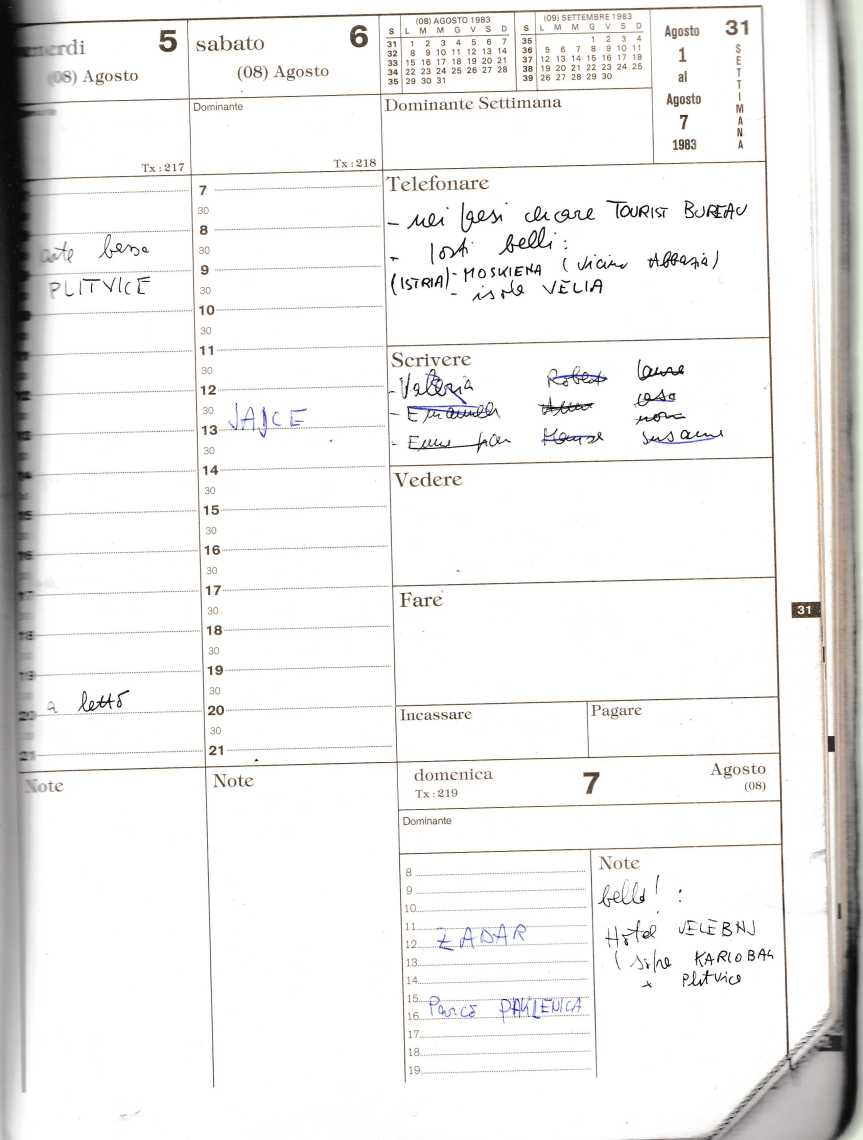 venerdi 5
(08) Agosto
Tx:217
PLITVICE
a letto
20
21
Note
sabato 6
(08) Agosto
Dominante
Tx:218
7
30
8
30
9
30
10
30
11
30
12
30
13 JAJCE
30
14
30
15
30
16
30
17
30
18
30
19
30
20
30
21
Note
(08) AGOSTO 1983
S L M M G V S D
31 1 2 3 4 5 6 7
32 8 9 10 11 12 13 14
33 15 16 17 18 19 20 21
34 22 23 24 25 26 27 28
35 29 30 31
(09) SETTEMBRE 1983
S L M M G V S D
35 1 2 3 4
36 5 6 7 8 9 10 11
37 12 13 14 15 16 17 18
38 19 20 21 22 23 24 25
39 26 27 28 29 30
Agosto
1
al
Agosto
7
1983
31
SETTIMANA
Dominante Settimana
Telefonare
- nei TOURIST BUREAU
- posti belli:
(ISTRIA) - MOSKIENA (vicino Abbazia)
- isole VELIA
Scrivere
- Valeria Robert
- Emanuela casa
nonna
- Susanne
Vedere
Fare
31
Incassare
Pagare
domenica 7 Agosto
Tx:219 (08)
Dominante
8
9
10
11
12 ZADAR
13
14
15
16 Parco PAKLENICA
17
18
19
Note
bello! :
Hotel VELEBNJ
( KARLOBAG
Plitvice